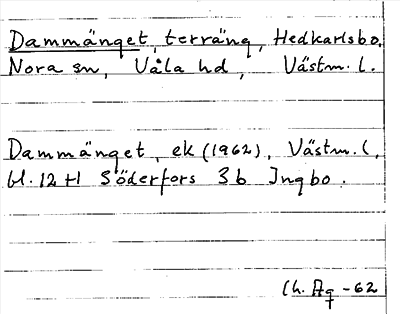 Dammänget, terräng, Hedkarlsbo,
Nora sn, Våla hd, Västm. l.
Dammänget, ek (1962), Västm. l,
bl. 12 H Söderfors 3 b Ingbo.
Ch. Ag -62